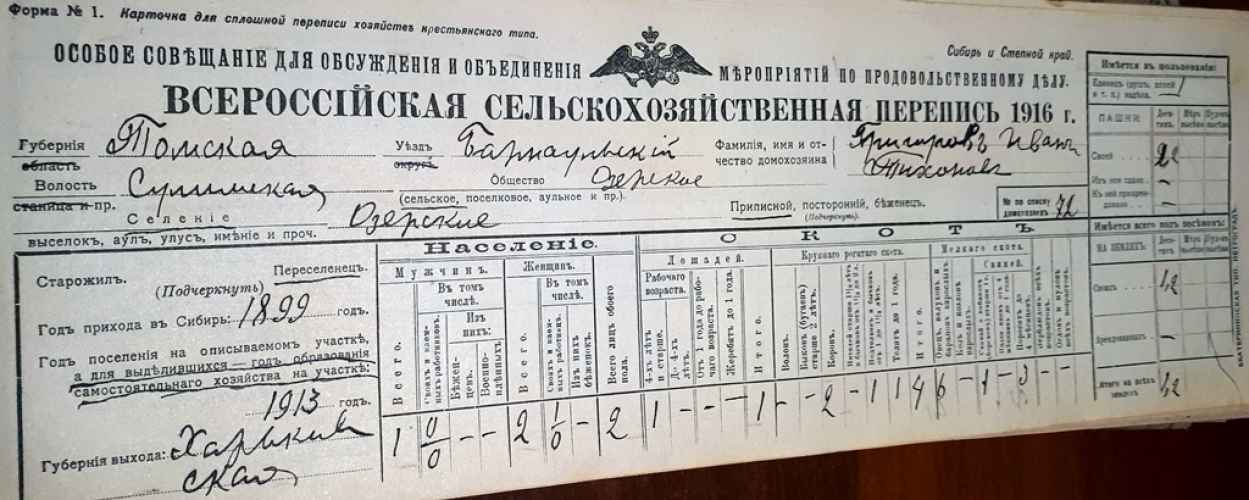 Форма № 1. Карточка для сплошной переписи хозяйствъ крестьянскаго типа.
Сибирь и Степной край.
ОСОБОЕ СОВѢЩАНІЕ ДЛЯ ОБСУЖДЕНІЯ И ОБЪЕДИНЕНІЯ
МѢРОПРІЯТІЙ ПО ПРОДОВОЛЬСТВЕННОМУ ДѢЛУ.
ВСЕРОССІЙСКАЯ СЕЛЬСКОХОЗЯЙСТВЕННАЯ ПЕРЕПИСЬ 1916 г.
Губернія Томская
область
Уѣздъ Барнаульскій
округъ.
Фамилія, имя и от-
чество домохозяина
Иванъ
Тихоновъ
Волость
станица и пр.
Общество Озерское
(сельское, поселковое, аульное и пр.).
Селеніе Озерские
выселокъ, аулъ, улусъ, имѣніе и проч.
Приписной, посторонній, бѣженецъ.
(Подчеркнуть)
№ по списку
домохозяевъ 72
Старожилъ. Переселенецъ.
(Подчеркнуть)
Годъ прихода въ Сибирь: 1899 годъ.
Годъ поселенія на описываемомъ участкѣ,
а для выдѣлившихся — годъ образованія
самостоятельнаго хозяйства на участкѣ:
1913 годъ.
Губернія выхода: Харьков
ская
Населеніе.
Мужчинъ.
Всего.
Въ томъ
числѣ.
Изъ
нихъ:
Бѣжен-
цевъ.
Военно-
плѣнныхъ
Женщинъ.
Всего.
Въ томъ
числѣ.
Изъ нихъ
бѣженокъ.
Всего лицъ обоего
пола.
1 0/0 - - 2 1/0 - 2
СКОТЪ
Лошадей.
Рабочаго
возраста.
4-хъ лѣтъ
и старше.
До 4-хъ
лѣтъ.
Отъ 1 года до рабо-
чаго возраста.
Жеребятъ до 1 года.
Итого.
Крупнаго рогатаго скота.
Воловъ.
Быковъ (бугаевъ)
старше 2 лѣтъ.
Коровъ.
Телятъ до 1 года.
Итого.
Мелкаго скота.
Свиней.
1 - - - 1 - - 2 - 1 1 4 6 - 1 - 3 - -
Имѣется въ пользованіи:
ПАШНИ
Деся-
тинъ.
Своей
Имѣется всего подъ посѣвомъ:
НА ЗЕМЛЯХЪ
Деся-
тинъ.
Своихъ 1,2
Арендованныхъ —
Итого на всѣхъ
земляхъ 1,2